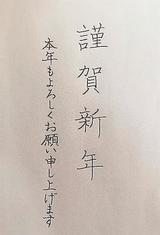 謹賀新年
本年もよろしくお願い申し上げます